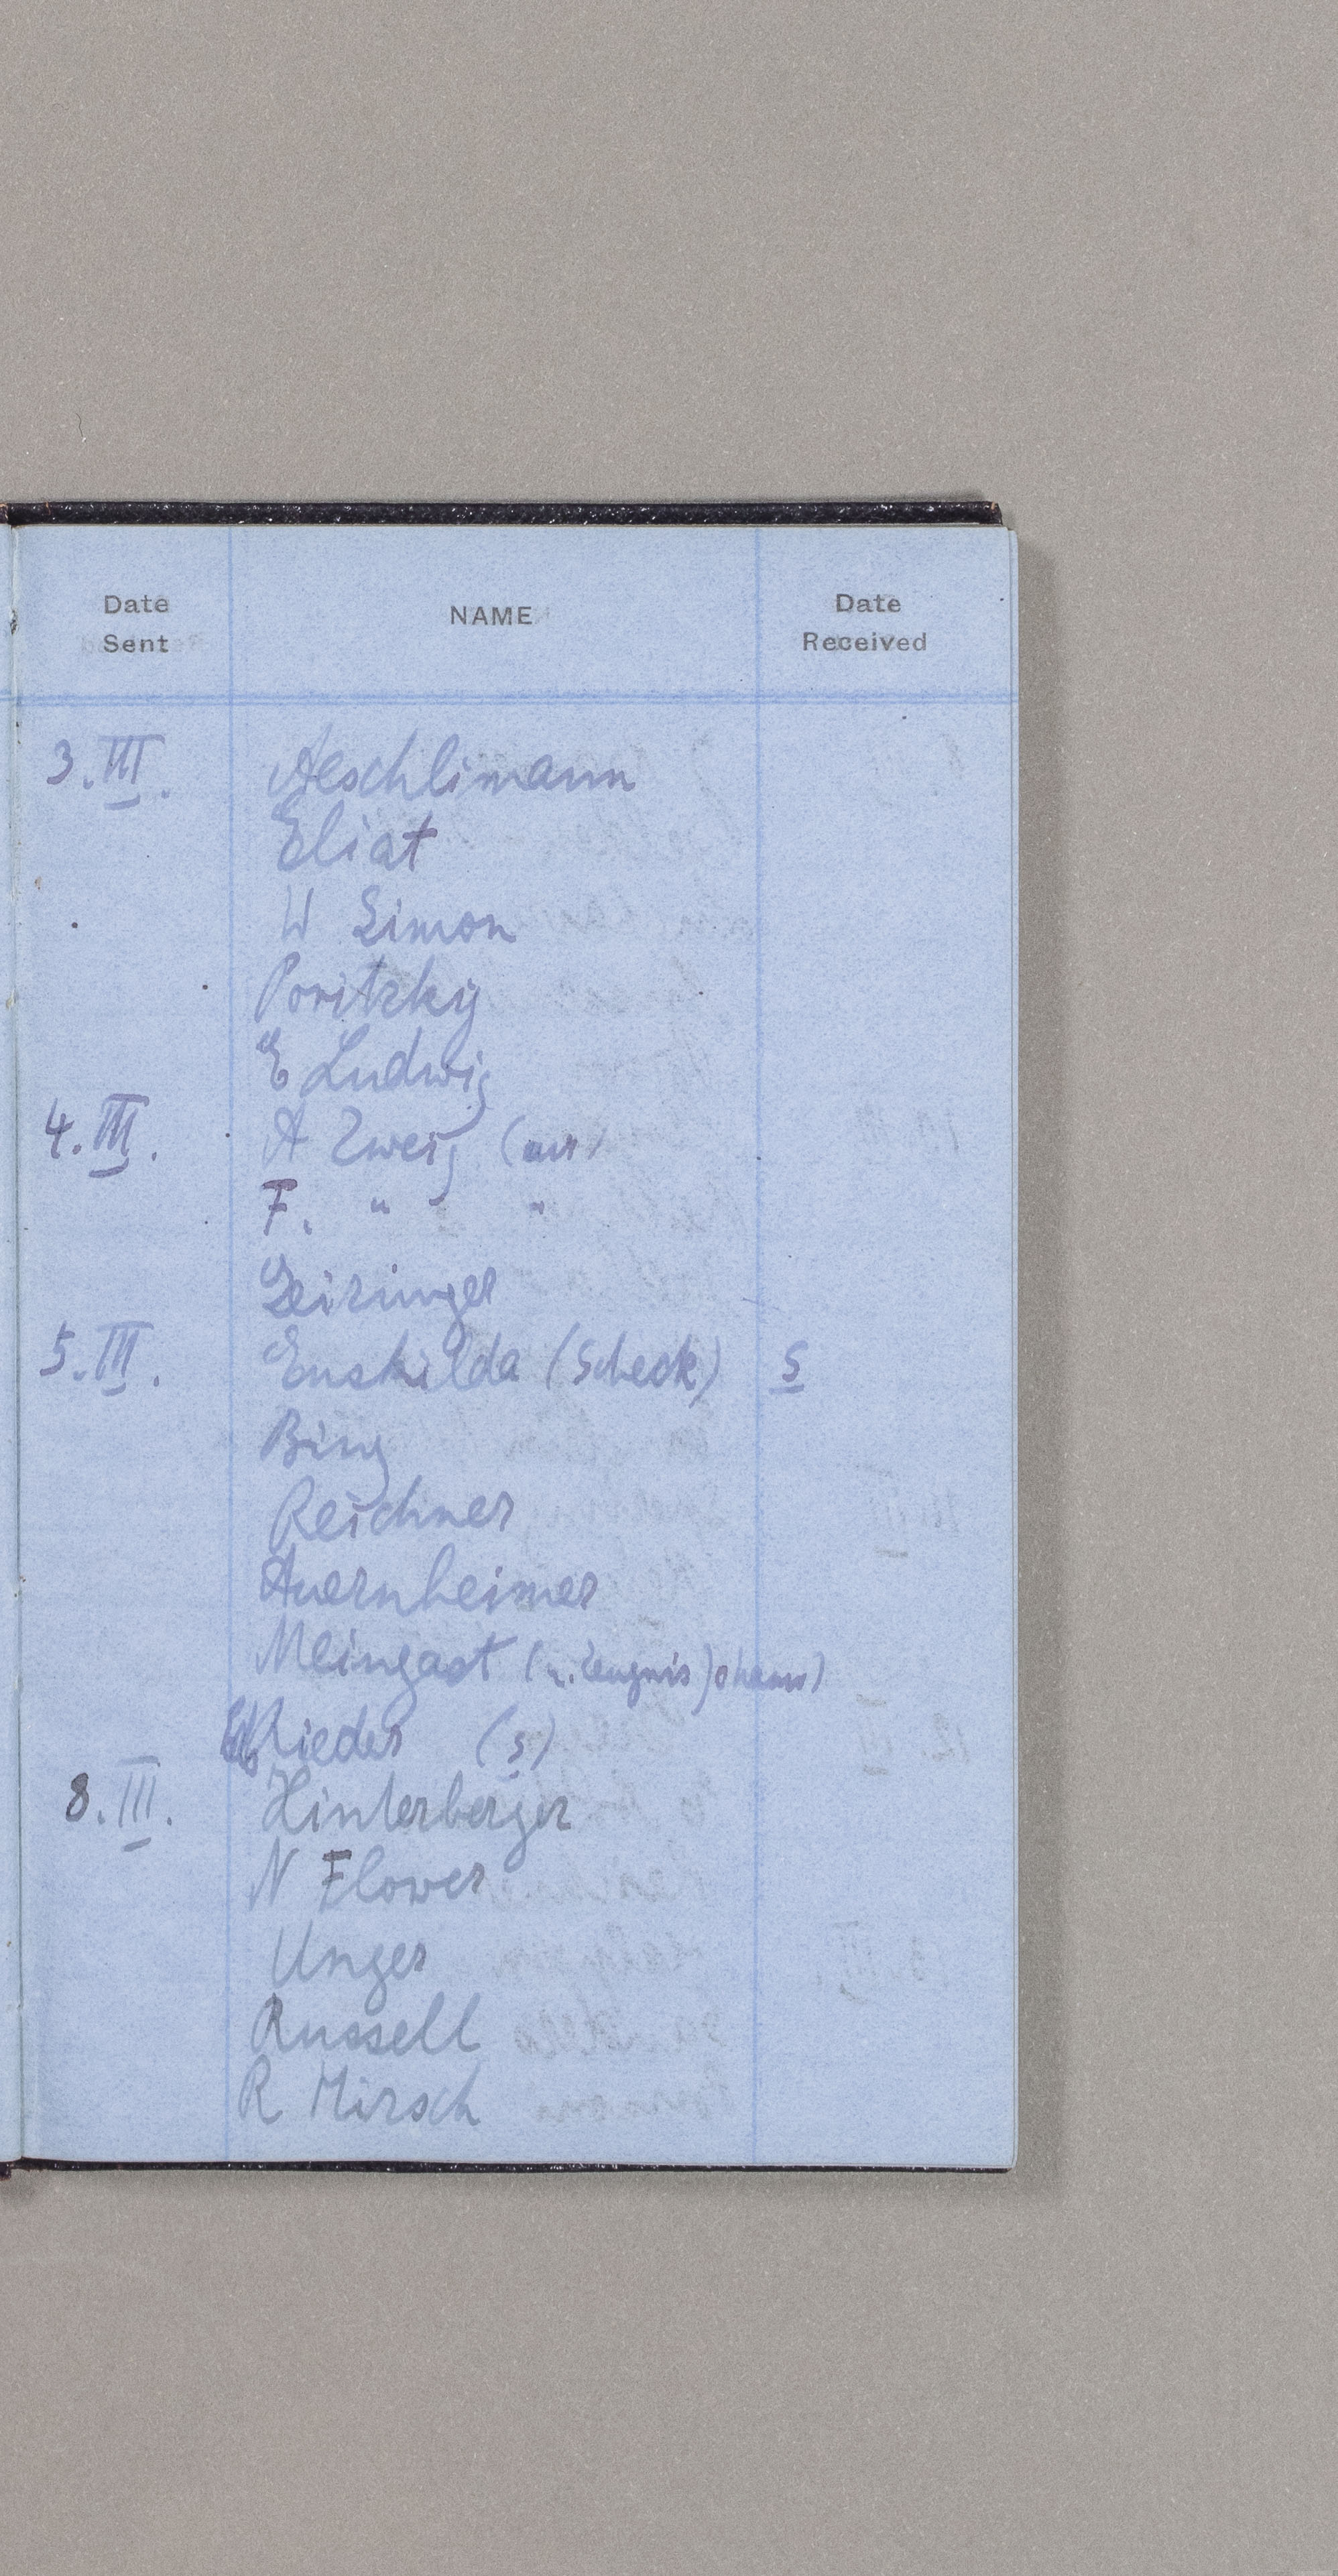 Date Sent NAME Date Received
3.III. Aeschlimann
Eliat
W Simon
Poritzky
E Ludwig
4.III. A Zweig
F. " "
Geiringer
5.III. Enskilda (Scheck) S
Bing
Reichner
Auernheimer
Meingast
Rieder (s)
8.III. Hinterberger
N Flower
Unger
Russell
R Hirsch